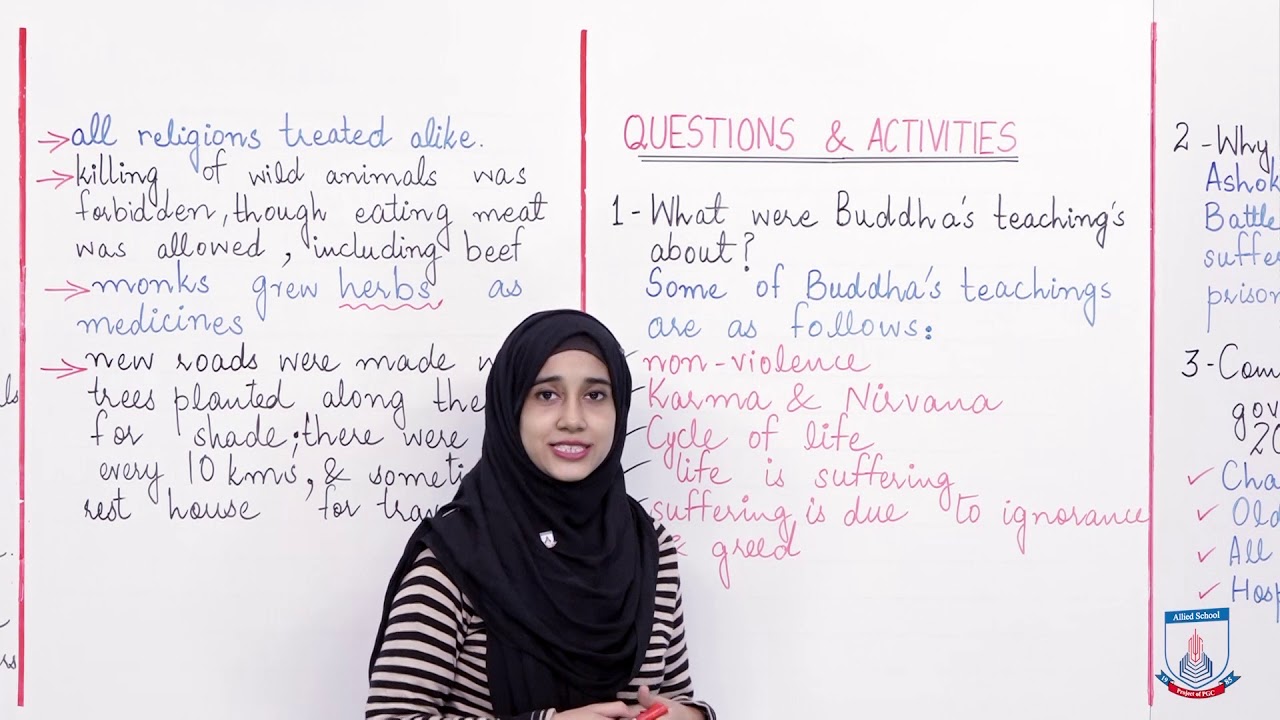 all religions treated alike.
killing of wild animals was
forbidden, though eating meat
was allowed, including beef
monks grew herbs as
medicines
new roads were made
trees planted along the
for shade; there were
every 10 kms, & someti
rest house for trav
QUESTIONS & ACTIVITIES
1- What were Buddha's teaching's
about?
Some of Buddha's teachings
are as follows:
non-violence
Karma & Nirvana
Cycle of life
life is suffering
suffering is due to ignorance
& greed
2 - Why
Ashok
Battle
suffer
prison
3 - Com
gov
20
Cha
Old
All
Hosp
Allied School
19 85
Project of PGC